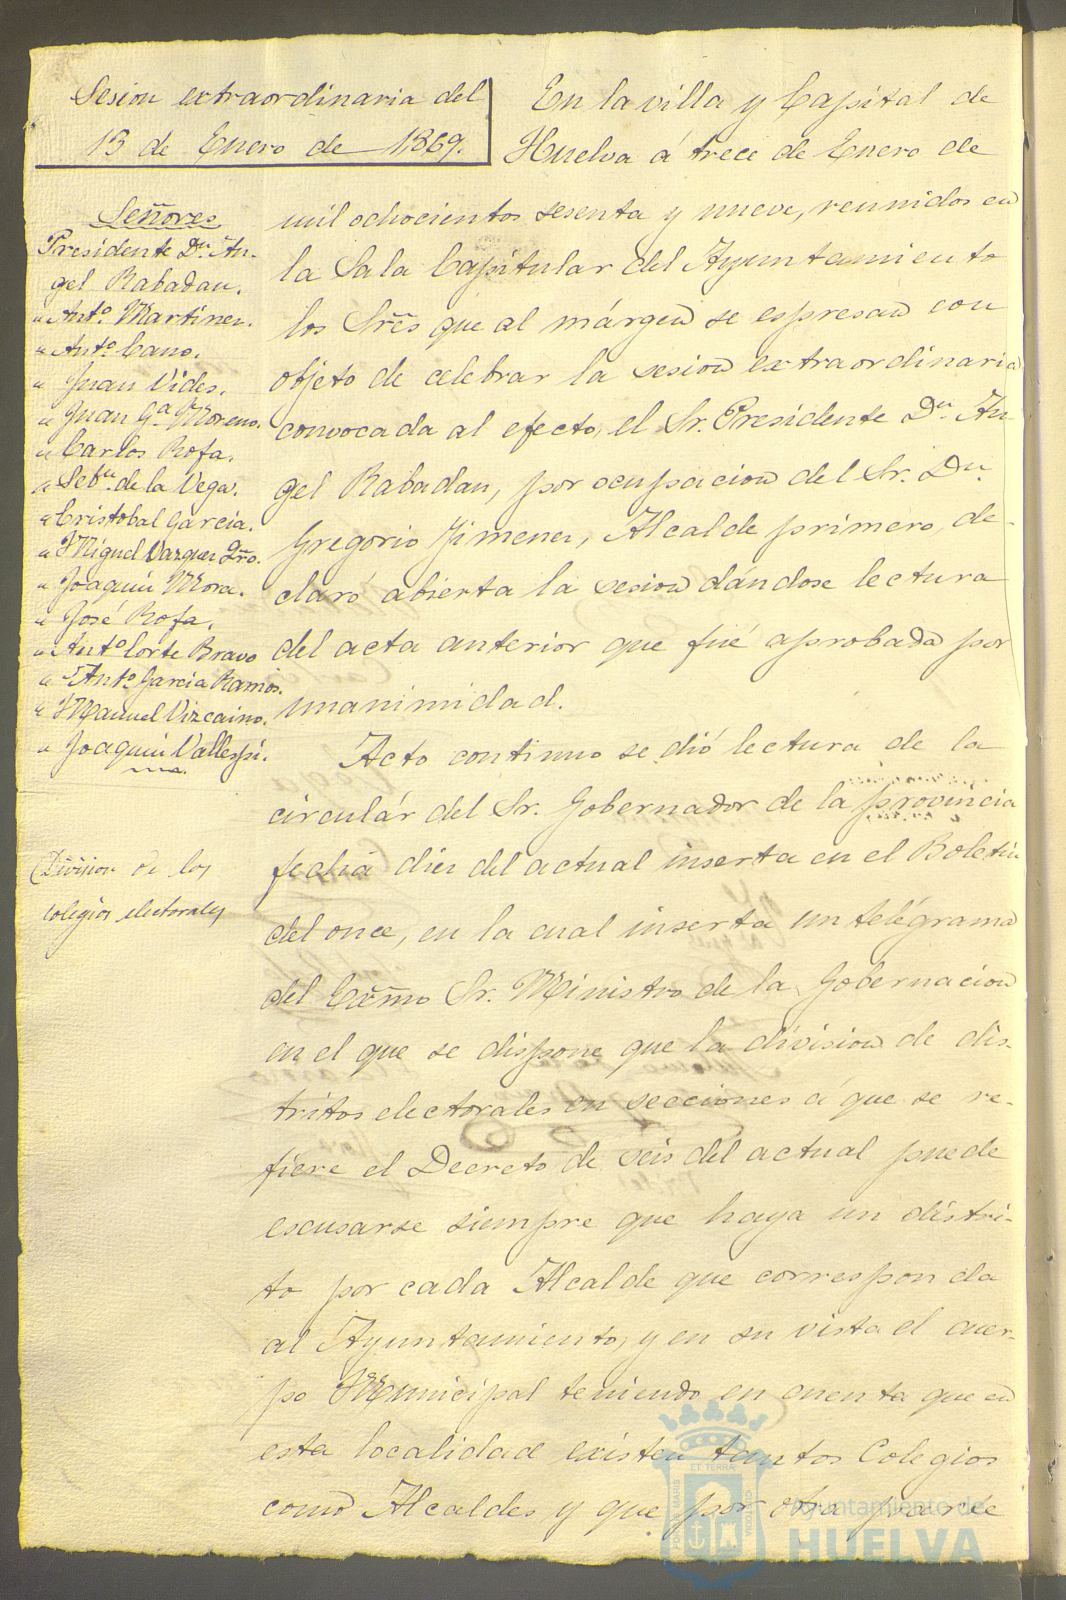 Sesion extraordinaria del
13 de Enero de 1869.
Señores
Presidente Dn. An-
gel Rabadan.
" Anto. Martinez.
" Anto. Cano.
" Juan Vides.
" Juan Ga. Moreno.
" Carlos Rofa.
" Sebn. de la Vega.
" Cristobal Garcia.
" Miguel Vazquez
" Joaquin Mora.
" José Rofa.
" Anto. Corte Bravo
" Anto. Garcia Ramos.
" Manuel Vizcaino.
" Joaquin Vallespi-
na.
Division de los
colegios electorales
En la villa y Capital de
Huelva á trece de Enero de
mil ochocientos sesenta y nueve, reunidos en
la Sala Capitular del Ayuntamiento
los Sres que al márgen se espresan con
objeto de celebrar la sesion extraordinaria
convocada al efecto, el Sr. Presidente Dn. An-
gel Rabadan, por ocupacion del Sr. Dn.
Gregorio Jimenez, Alcalde primero, de-
claró abierta la sesion dándose lectura
del acta anterior que fué aprobada por
unanimidad.
Acto continuo se dió lectura de la
circulár del Sr. Gobernador de la provincia
fecha diez del actual inserta en el Boletin
del once, en la cual inserta un telégrama
del Excmo Sr. Ministro de la Gobernacion
en el que se dispone que la division de dis-
tritos electorales en secciones á que se re-
fiere el Decreto de seis del actual puede
escusarse siempre que haya un distri-
to por cada Alcalde que corresponda
al Ayuntamiento, y en su vista el cuer-
po Municipal teniendo en cuenta que en
esta localidad existen tantos Colegios
como Alcaldes y que por otra parte
ET TERRA
PORTUS MARIS
CUSTODIA
Ayuntamiento de
HUELVA